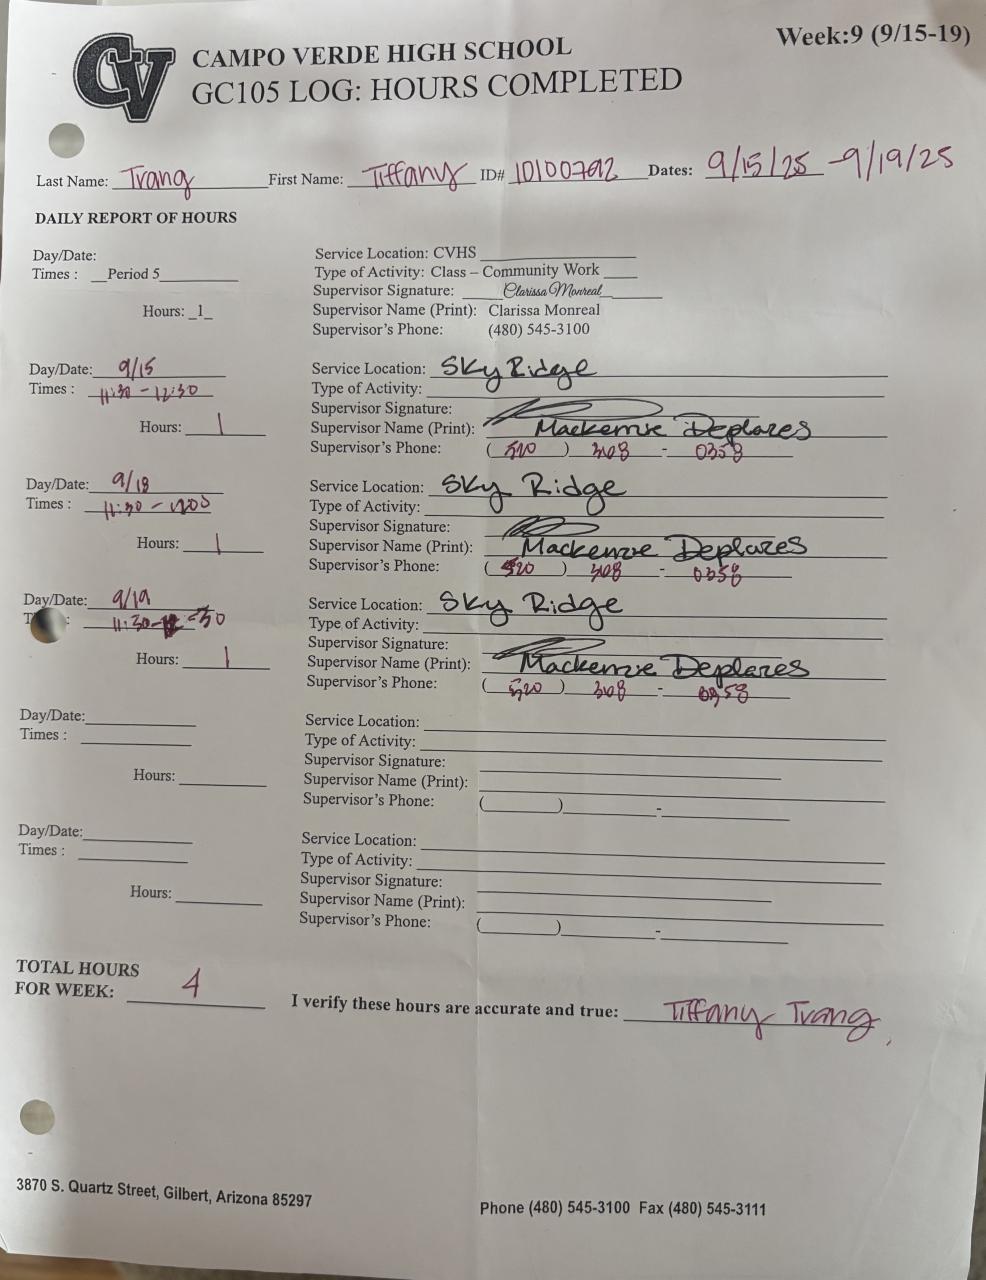 Week:9 (9/15-19)
CV CAMPO VERDE HIGH SCHOOL
GC105 LOG: HOURS COMPLETED
Last Name: Trang First Name: Tiffany ID# 101007692 Dates: 9/15/25 - 9/19/25
DAILY REPORT OF HOURS
Day/Date: Service Location: CVHS
Times : Period 5 Type of Activity: Class – Community Work
Supervisor Signature: Clarissa Monreal
Hours: 1 Supervisor Name (Print): Clarissa Monreal
Supervisor's Phone: (480) 545-3100
Day/Date: 9/15 Service Location: Sky Ridge
Times : 11:30 - 12:30 Type of Activity:
Supervisor Signature:
Hours: 1 Supervisor Name (Print): Mackenzie Deplazes
Supervisor's Phone: (520) 308 - 0358
Day/Date: 9/18 Service Location: Sky Ridge
Times : 11:30 - Type of Activity:
Supervisor Signature:
Hours: 1 Supervisor Name (Print): Mackenzie Deplazes
Supervisor's Phone: (520) 308 - 0358
Day/Date: 9/19 Service Location: Sky Ridge
11:30 - Type of Activity:
Supervisor Signature:
Hours: 1 Supervisor Name (Print): Mackenzie Deplazes
Supervisor's Phone: (520) 308 - 0358
Day/Date: Service Location:
Times : Type of Activity:
Supervisor Signature:
Hours: Supervisor Name (Print):
Supervisor's Phone: ( ) -
Day/Date: Service Location:
Times : Type of Activity:
Supervisor Signature:
Hours: Supervisor Name (Print):
Supervisor's Phone: ( ) -
TOTAL HOURS
FOR WEEK: 4 I verify these hours are accurate and true: Tiffany Trang
3870 S. Quartz Street, Gilbert, Arizona 85297 Phone (480) 545-3100 Fax (480) 545-3111